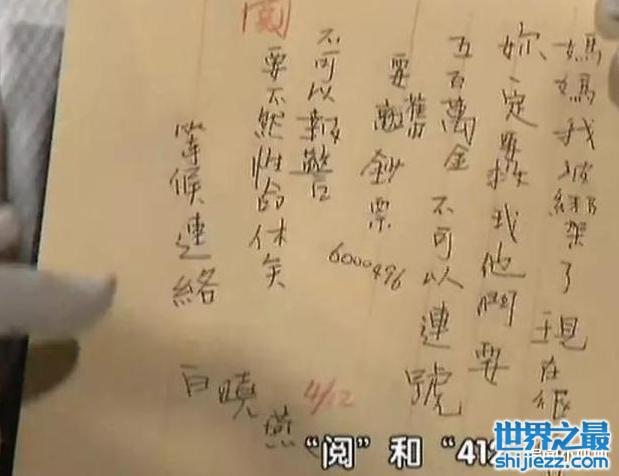 媽媽我被綁架了現在很
妳一定要救我他們要
五百萬金 不可以連號
要舊鈔票
6000496
不可以報警
要不然性命休矣
等候連絡
白曉燕
4/12
閱
“阅”和“412
世界之最
shijiezz.com